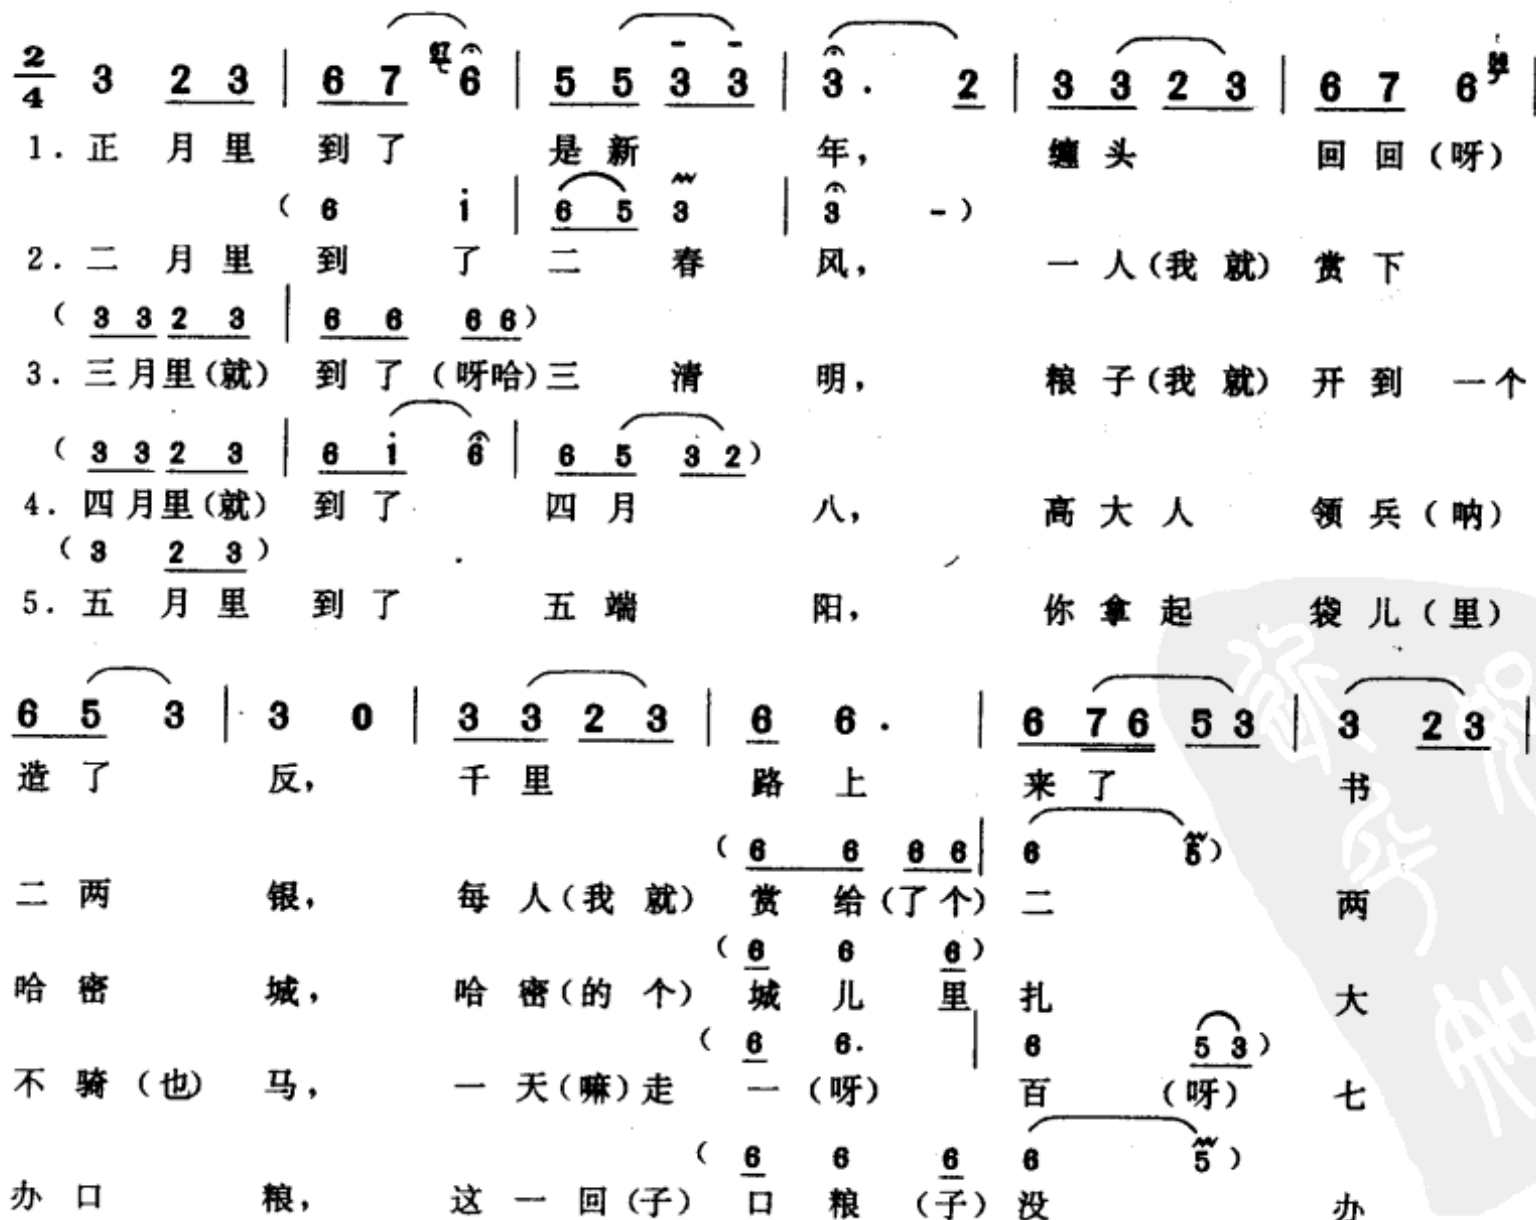 2/4 3 2 3 | 6 7 6 | 5 5 3 3 | 3 . 2 | 3 3 2 3 | 6 7 6 |
1. 正 月 里 到 了 是 新 年, 缠 头 回 回 (呀)
( 6 i | 6 5 3 | 3 - )
2. 二 月 里 到 了 二 春 风, 一 人 (我 就) 赏 下
( 3 3 2 3 | 6 6 6 6 )
3. 三 月 里 (就) 到 了 (呀哈) 三 清 明, 粮 子 (我 就) 开 到 一 个
( 3 3 2 3 | 6 i 6 | 6 5 3 2 )
4. 四 月 里 (就) 到 了 四 月 八, 高 大 人 领 兵 (呐)
( 3 2 3 )
5. 五 月 里 到 了 五 端 阳, 你 拿 起 袋 儿 (里)
6 5 3 | 3 0 | 3 3 2 3 | 6 6 . | 6 7 6 5 3 | 3 2 3 |
造 了 反, 千 里 路 上 来 了 书
( 6 6 6 6 | 6 5 )
二 两 银, 每 人 (我 就) 赏 给 (了 个) 二 两
( 6 6 6 )
哈 密 城, 哈 密 (的 个) 城 儿 里 扎 大
( 6 6. | 6 5 3 )
不 骑 (也) 马, 一 天 (嘛) 走 一 (呀) 百 (呀) 七
( 6 6 6 6 5 )
办 口 粮, 这 一 回 (子) 口 粮 (子) 没 办